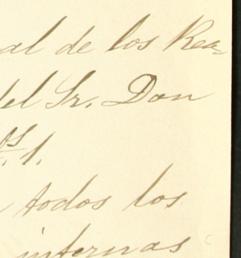 al de los Rea
del Sr. Don
1.
todos los
internas